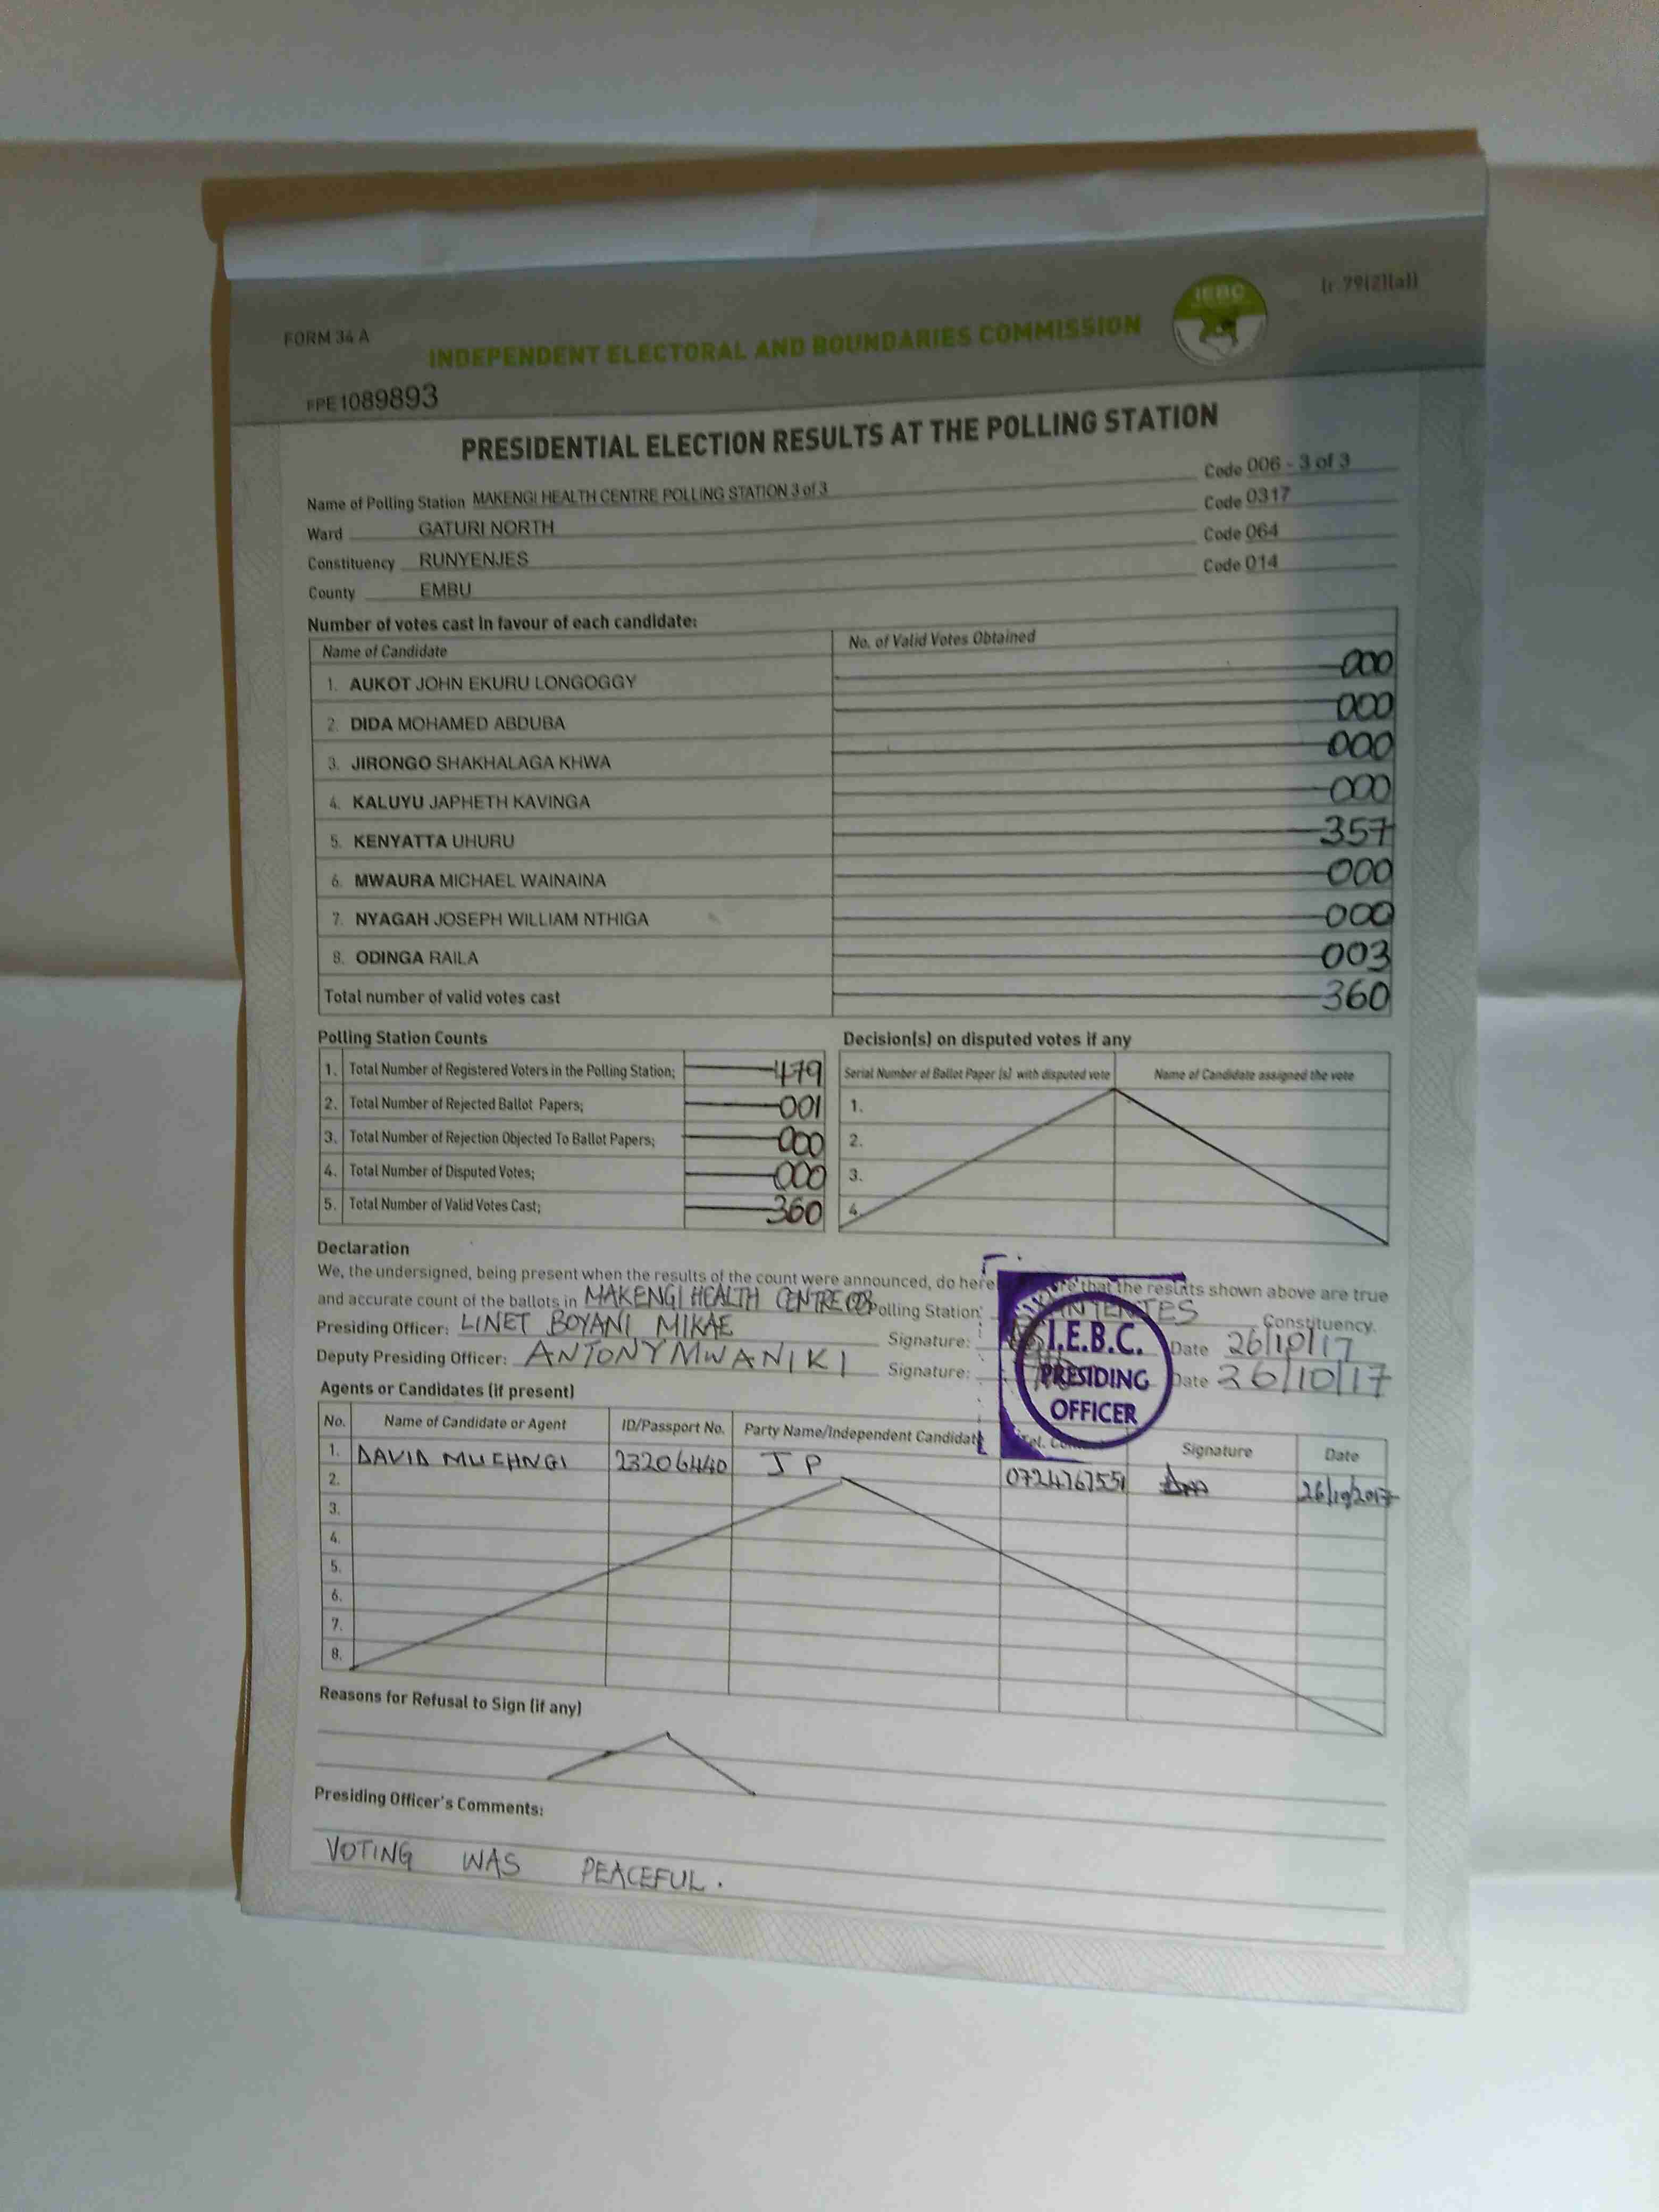 (r. 79(2)(a))
IEBC
FORM 34 A
INDEPENDENT ELECTORAL AND BOUNDARIES COMMISSION
FPE1089893
PRESIDENTIAL ELECTION RESULTS AT THE POLLING STATION
Name of Polling Station MAKENGI HEALTH CENTRE POLLING STATION 3 of 3 Code 006 - 3 of 3
Ward GATURI NORTH Code 0317
Constituency RUNYENJES Code 064
County EMBU Code 014
Number of votes cast in favour of each candidate:
Name of Candidate No. of Valid Votes Obtained
1. AUKOT JOHN EKURU LONGOGGY 000
2. DIDA MOHAMED ABDUBA 000
3. JIRONGO SHAKHALAGA KHWA 000
4. KALUYU JAPHETH KAVINGA 000
5. KENYATTA UHURU 357
6. MWAURA MICHAEL WAINAINA 000
7. NYAGAH JOSEPH WILLIAM NTHIGA 000
8. ODINGA RAILA 003
Total number of valid votes cast 360
Polling Station Counts
1. Total Number of Registered Voters in the Polling Station; 479
2. Total Number of Rejected Ballot Papers; 001
3. Total Number of Rejection Objected To Ballot Papers; 000
4. Total Number of Disputed Votes; 000
5. Total Number of Valid Votes Cast; 360
Decision(s) on disputed votes if any
Serial Number of Ballot Paper (s) with disputed vote Name of Candidate assigned the vote
1.
2.
3.
4.
Declaration
We, the undersigned, being present when the results of the count were announced, do here that the results shown above are true
and accurate count of the ballots in MAKENGI HEALTH CENTRE Polling Station; Constituency.
Presiding Officer: LINET BOYANI MIKAE Signature: Date 26/10/17
Deputy Presiding Officer: ANTONY MWANIKI Signature: Date 26/10/17
I.E.B.C.
PRESIDING
OFFICER
Agents or Candidates (if present)
No. Name of Candidate or Agent ID/Passport No. Party Name/Independent Candidate Tel. Signature Date
1. DAVID MUCHNGI 23206440 J P 0724767551 26/10/2017
2.
3.
4.
5.
6.
7.
8.
Reasons for Refusal to Sign (if any)
Presiding Officer's Comments:
VOTING WAS PEACEFUL.